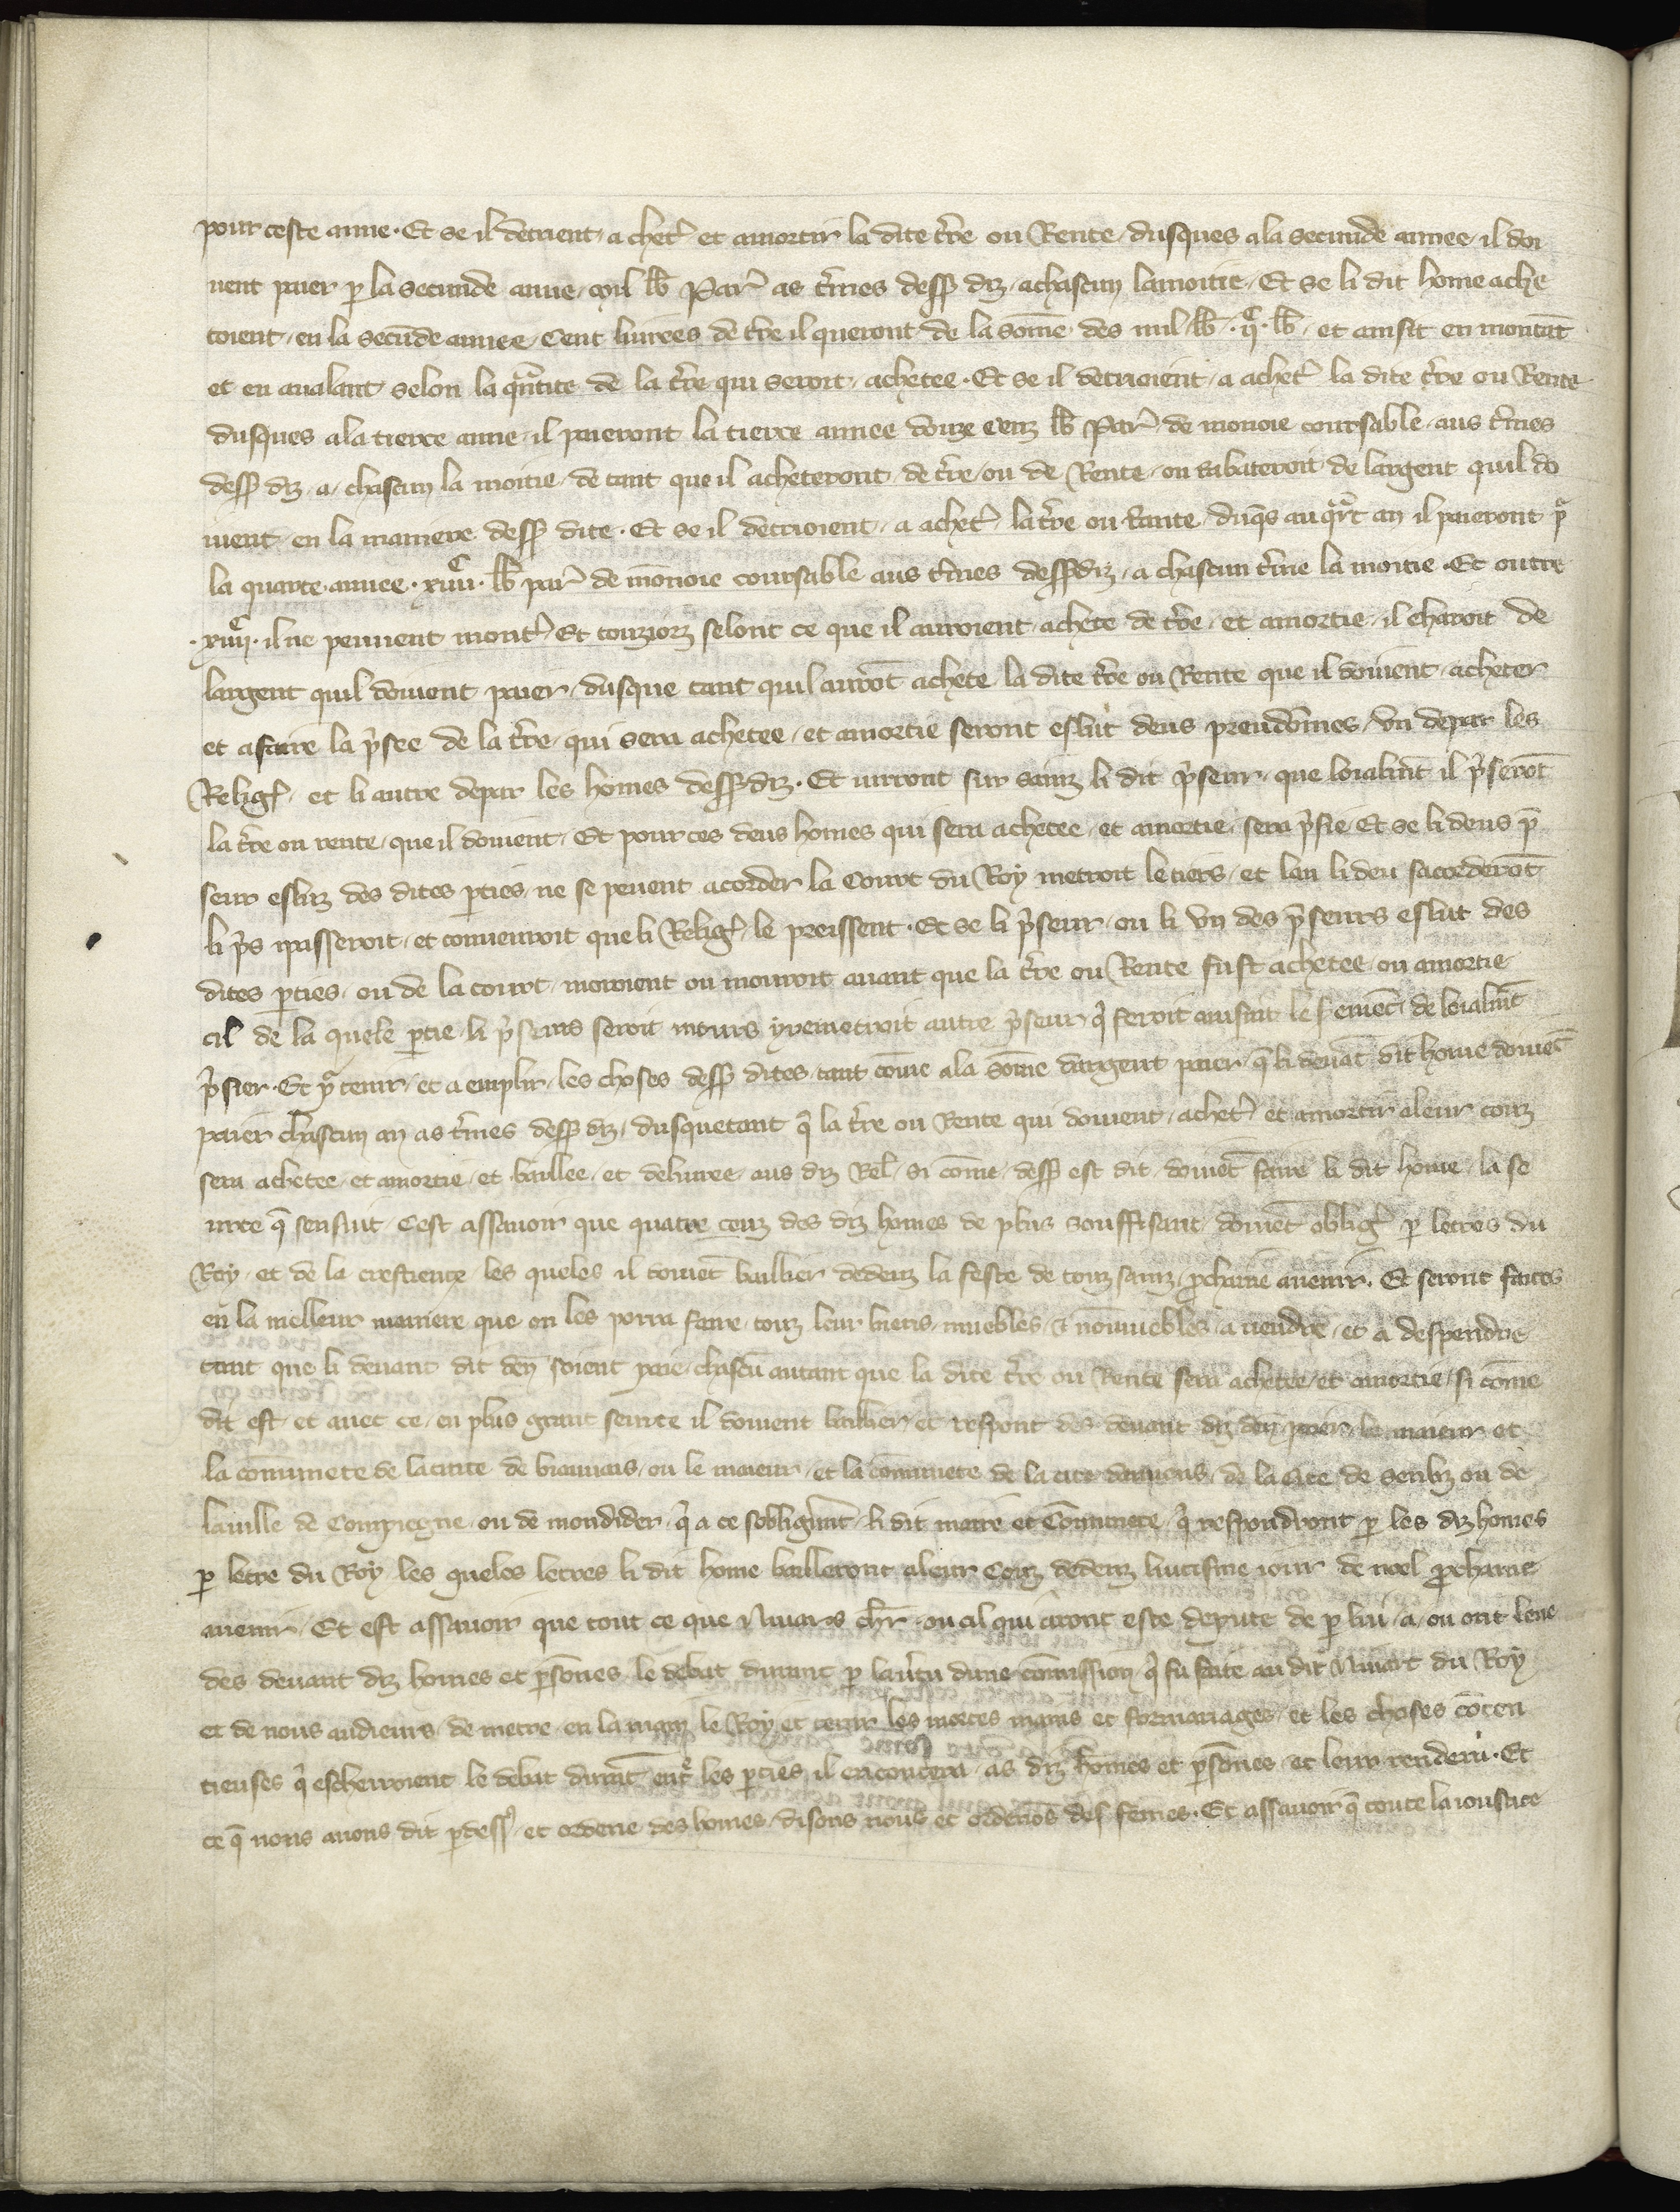 pour ceste anne · Et se il detrient a chet̉ et amortir la dite t̉re ou Rente dusques ala secunde annee il doi
uent paier ꝑ la secunde anne mil lb̃ Par̉ as t̉mes dess̃ diz achascun lamoitie Et se li dit home ache
toient en la secũde annee Cent liurees de t̉re il queront de la som̃e des mil lb̃ · ijͨ · lb̃ et ainsit en montãt
et en aualant selon la qͣntite de la t̉re qui seroit achetee · Et se il detrioient a achet̉ la dite t̉re ou Rente
dusques ala tierce anne il paieront la tierce annee douze cenz lb̃ Par̉ de monoie coursable aus t̉mes
dess̃ diz a chascun la moitie de tant que il acheteront de t̉re ou de Rente on rabateroit de largent quil do
iuent en la maniere dess̃ dite · Et se il detrioient a achet̉ la t̉re ou rante duq̃s au qͣrt an il paieront pͣ
la quarte annee · xiiijͨ · lb̃ par̉ de mõnoie coursable aus t̉mes dess̃diz a chascun t̉me la moitie · Et outre
· xiiijͨ · il ne peuuent mont̉ Et touziorz selonc ce que il auroient achete de t̉re et amortie il charoit de
largent quil doiuent paier dusque tant quil aurõt achete la dite t̉re ou Rente que il doiuent acheter
et afaire la p̉see de la t̉re qui sera achetee et amortie seront eslut deus preudom̃es vn depar les
Relig̃ et li autre depar les homes dess̃diz · Et iurront sur sainz li dit p̉seur que loialmẽt il p̉serõt
la t̉re ou rente que il doiuent Et pour ces deus homes qui sera achetee et amortie sera p̉sie Et se li deus p̉
seur esliz des dites ꝑties ne se peuent acorder la Court du Roy metroit le tiers et len li deu sacorderõt
li p̉s passeroit et conuenroit que li Relig̃ le preissent · Et se li p̉seur ou li vn des p̉seurs eslut des
dites ꝑties ou de la court moroient ou mouroit auant que la t̉re ou Rente fust achetee ou amortie
cil de la quele ꝑtie li p̉seurs seroit mors y remetroit autre p̉seur q̉ feroit ausint le s̉emẽt de loialmẽt
p̉sier · Et pͣ tenir et a emplir les choses dess̃ dites tant com̃e ala som̃e dargent paier q̃ li deuãt dit home doiuẽt
paier chascun an as t̉mes dess̃ diz dusquetant q̉ la t̉re ou Rente qui doiuent achet̉ et amortir aleur couz
sera achetee et amortie et baillee et deliuree aus diz Rel̃ si com̃e dess̃ est dit doiuẽt faire li dit home la se
urte q̃ sensuit Cest assauoir que quatre cenz des diz homes de plus souffisant doiuẽt oblig̉ ꝑ letres du
Roy et de la crestiente les queles il doiuẽt baillier dedenz la feste de touz sainz ꝓchaine auenir · Et seront faites
en la meilleur maniere que on les porra faire touz leur biens muebles ⁊ nõmuebles a uendre et a despendre
tant que li deuant dit den̉ soient paie chascũ autant que la dite t̉re ou Rente sera achetee et amortie si com̃e
dit est et auec ce en plus grant seurte il doiuent baillier et respont des deuant diz den̉ paier le maieur et
la comunete de lacitte de biauuais ou le maieur et la com̃unete de la cite damiens de la cite de senliz ou de
lauille de Compiegne ou de mondider q̉ a ce sobligerẽt li dit maire et Com̃unete q̉ respondront ꝑ les diz homes
ꝑ letre du Roy les queles letres li dit home bailleront aleur Couz dedenz liuitisme iour de noel ꝓchaine
auenir Et est assauoir que tout ce que Nuars chl̃r ou cil qui aront este depute de ꝑ lui a ou ont leue
des deuant diz homes et ꝑsones le debat durant ꝑ lau̾tu dune com̃ission q̉ fu faite au dit Nuart du Roy
et de nous audieurs de metre en la main le Roy et tenir les mortes mains et formariages et les choses cõten
tieuses q̉ escherroient le debat durãt entͤ les ꝑties il en contera as diz homes et ꝑsones et leur rendera · Et
ce q̃ nous auons dit ꝑ dess̉ et ordene des homes disons nous et ordenõs des femes · Et assauoir q̃ toute la ioustice